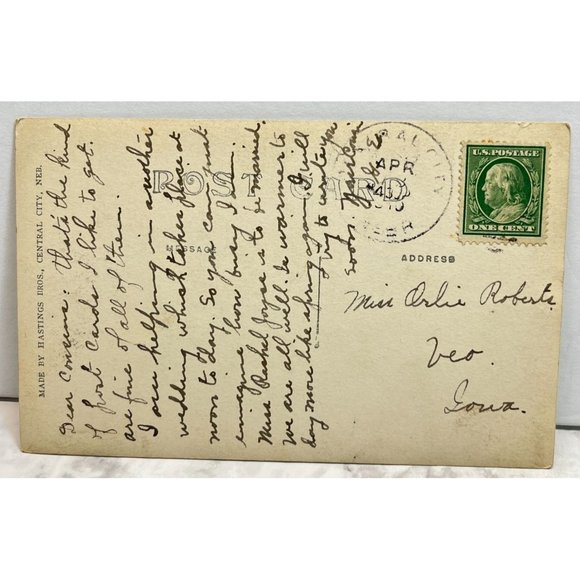 MADE BY HASTINGS BROS., CENTRAL CITY, NEB.
POST CARD
MESSAGE
ADDRESS
Dear Cousins: That's the kind
of post cards I like to get.
are fine all of them.
I am helping in another
wedding which takes place at
noon to-day. So you can just
imagine how busy I am.
Miss Rachel Joyce is to be married.
We are all well. Is warmer to
day more like spring again. I will
try to write you
soon.
CENTRAL CITY
APR
NEBR
U.S. POSTAGE
ONE CENT
Miss Orlie Roberts
Veo
Iowa.